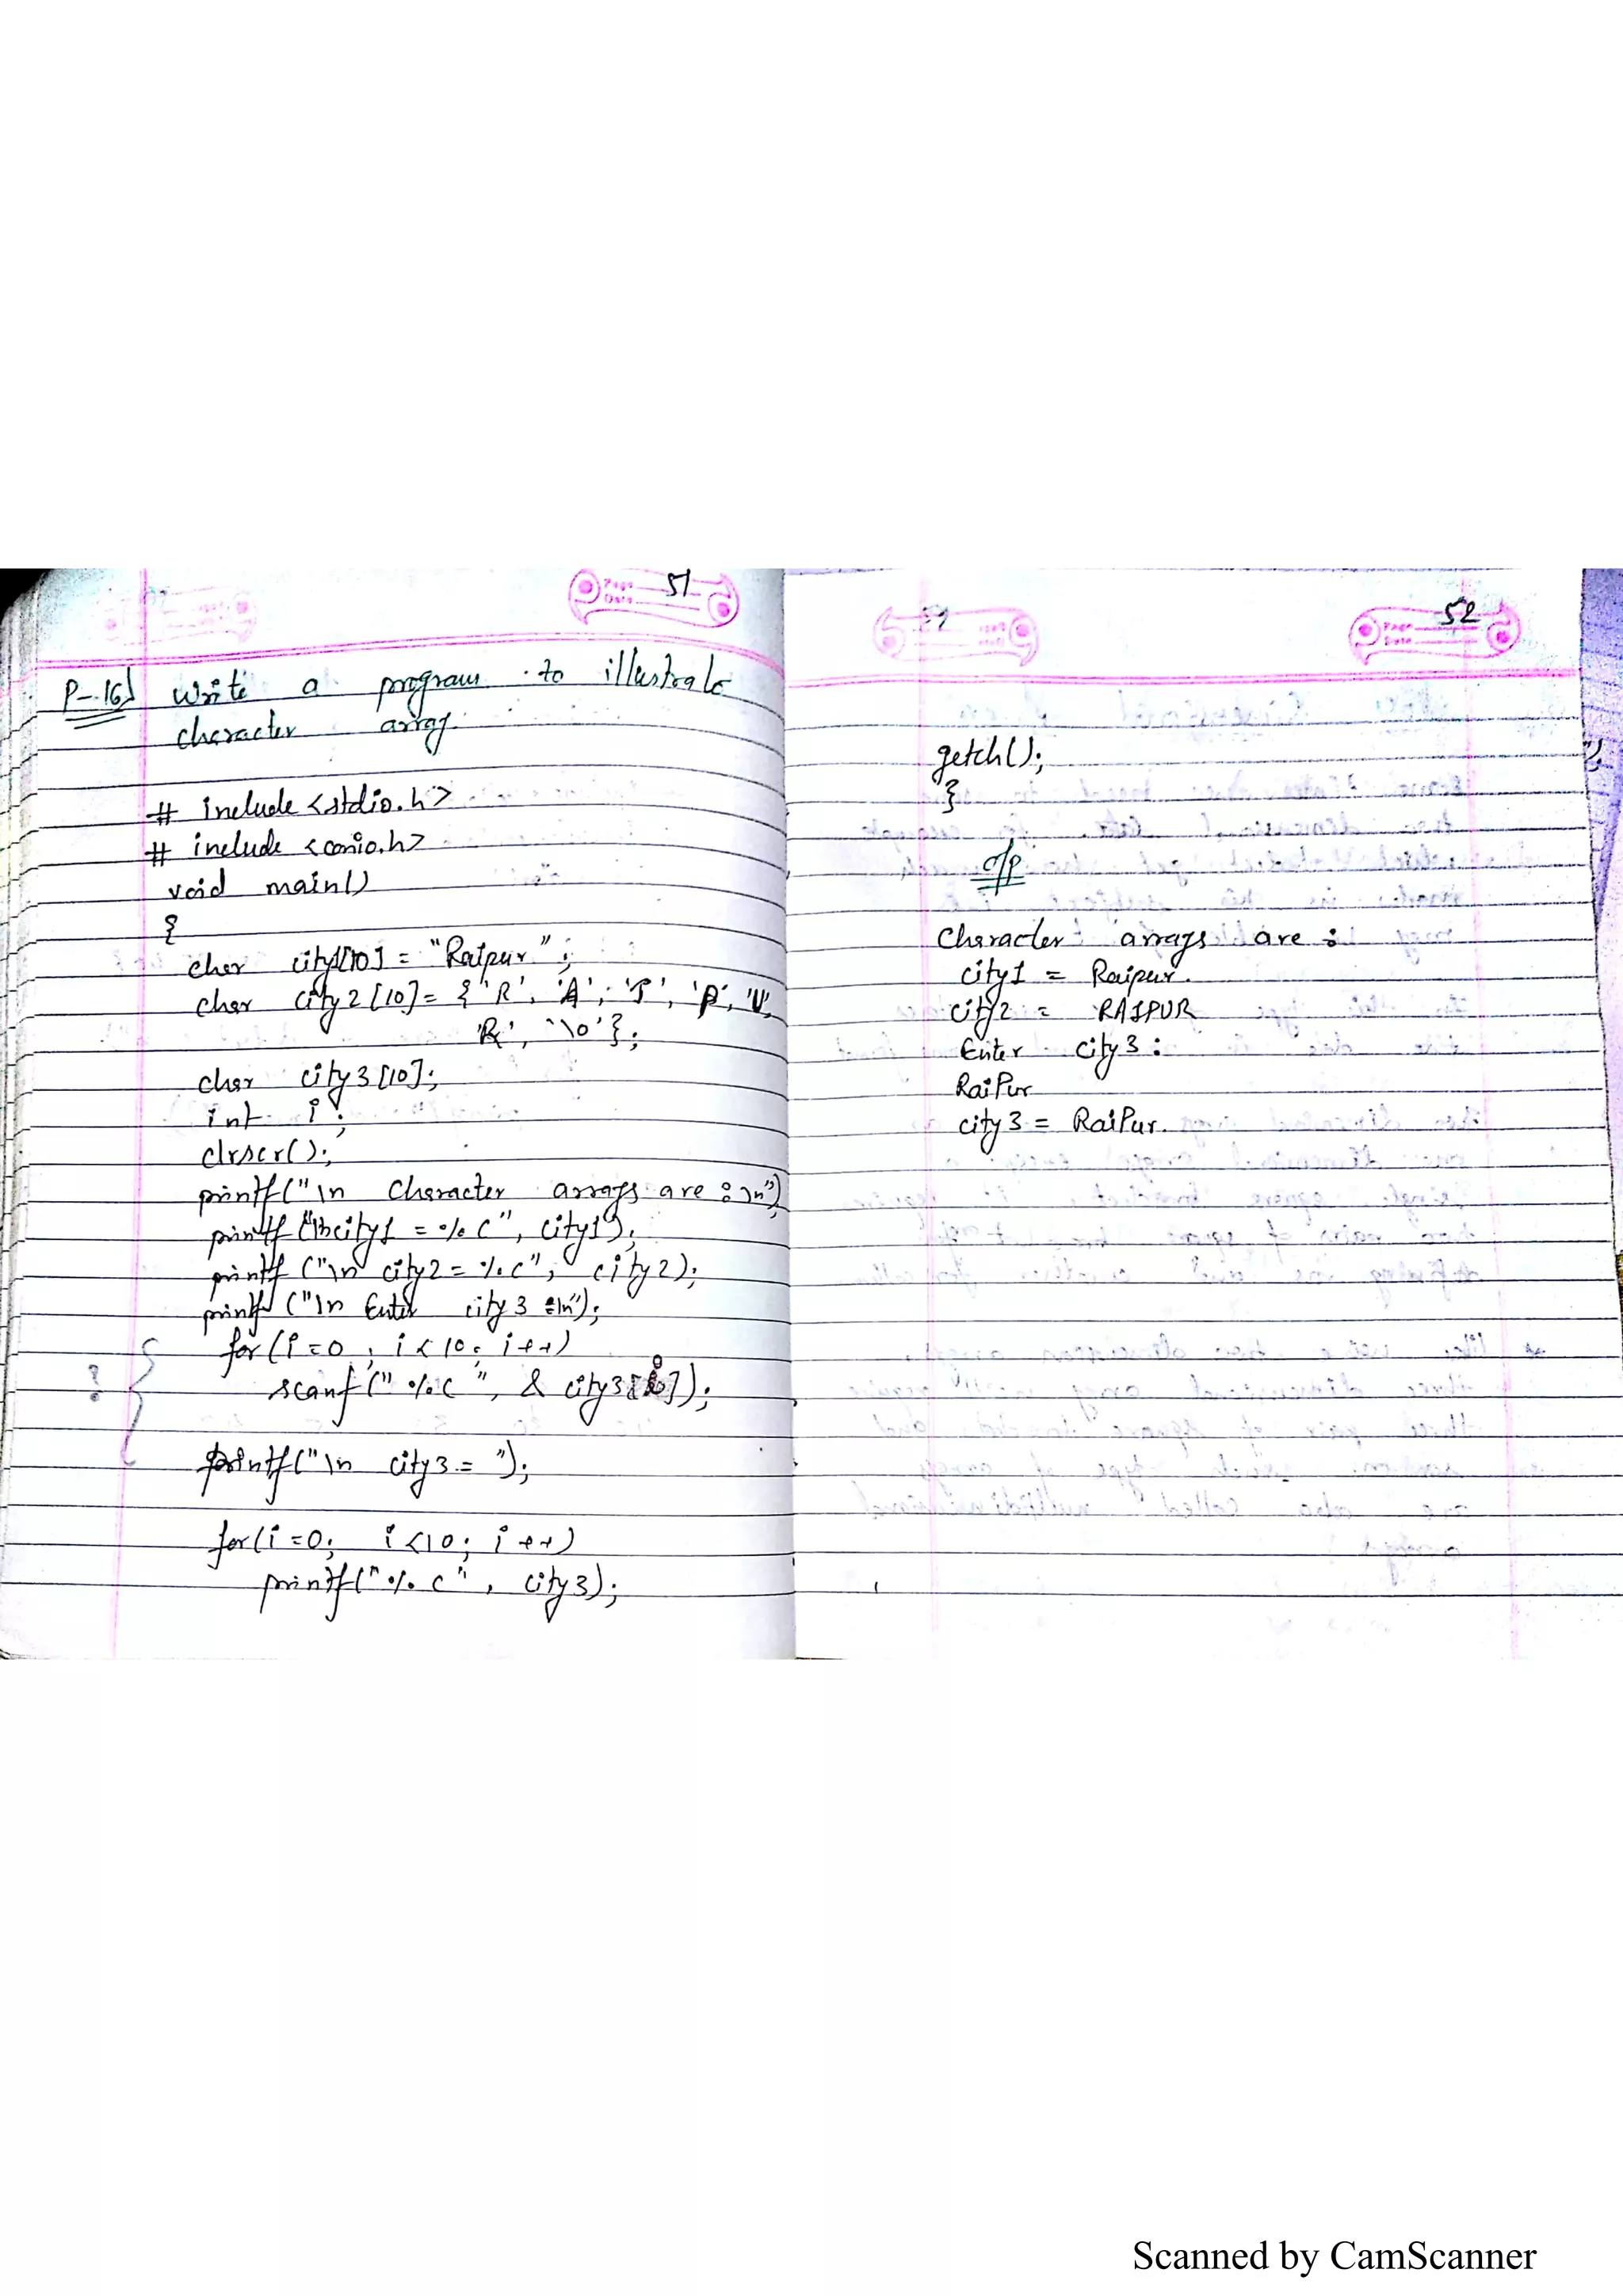 Page 51
Date
P-16) Write a program to illustrate
character array.
# include <stdio.h>
# include <conio.h>
void main()
{
char city1[10] = "Raipur";
char city2[10] = {'R', 'A', 'I', 'P', 'U',
'R', '\0'};
char city3[10];
int i;
clrscr();
printf("\n Character arrays are : \n")
printf("\n city1 = %c", city1);
printf ("\n city2 = %c", city2);
printf ("\n Enter city3 :\n");
for (i=0, i<10; i++)
? { scanf(" %c ", & city3[i]);
printf("\n city3 = ");
for(i=0; i<10; i++)
printf("%c", city3);
Page 52
Date
getch();
}
o/p
Character arrays are :
city1 = Raipur.
city2 = RAIPUR
Enter city3 :
RaiPur
city3 = RaiPur.
Scanned by CamScanner